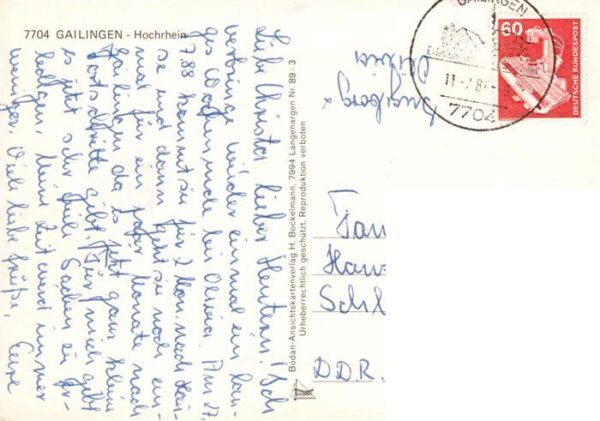 7704 GAILINGEN - Hochrhein
Liebe Christa, lieber Hermann! Ich
verbringe wieder einmal ein lan-
ges Wochenende bei Olivia. Am 27.
7.88 kommt sie für 2 Mon. nach Hau-
se und dann geht sie noch ein-
mal für ein paar Monate nach
Gailingen, da es jetzt ganz kleine
Fortschritte gibt. Für mich gibt
es jetzt sehr viele Sachen zu er-
ledigen, meine Zeit wird immer
weniger. Viele liebe Grüße,
Eure
Olivia
Bodan-Ansichtskartenverlag H. Bockelmann, 7994 Langenargen Nr. 89 - 3
Urheberrechtlich geschützt. Reproduktion verboten
GAILINGEN
7704
60
DEUTSCHE BUNDESPOST
Fam
Han
Schl
DDR.